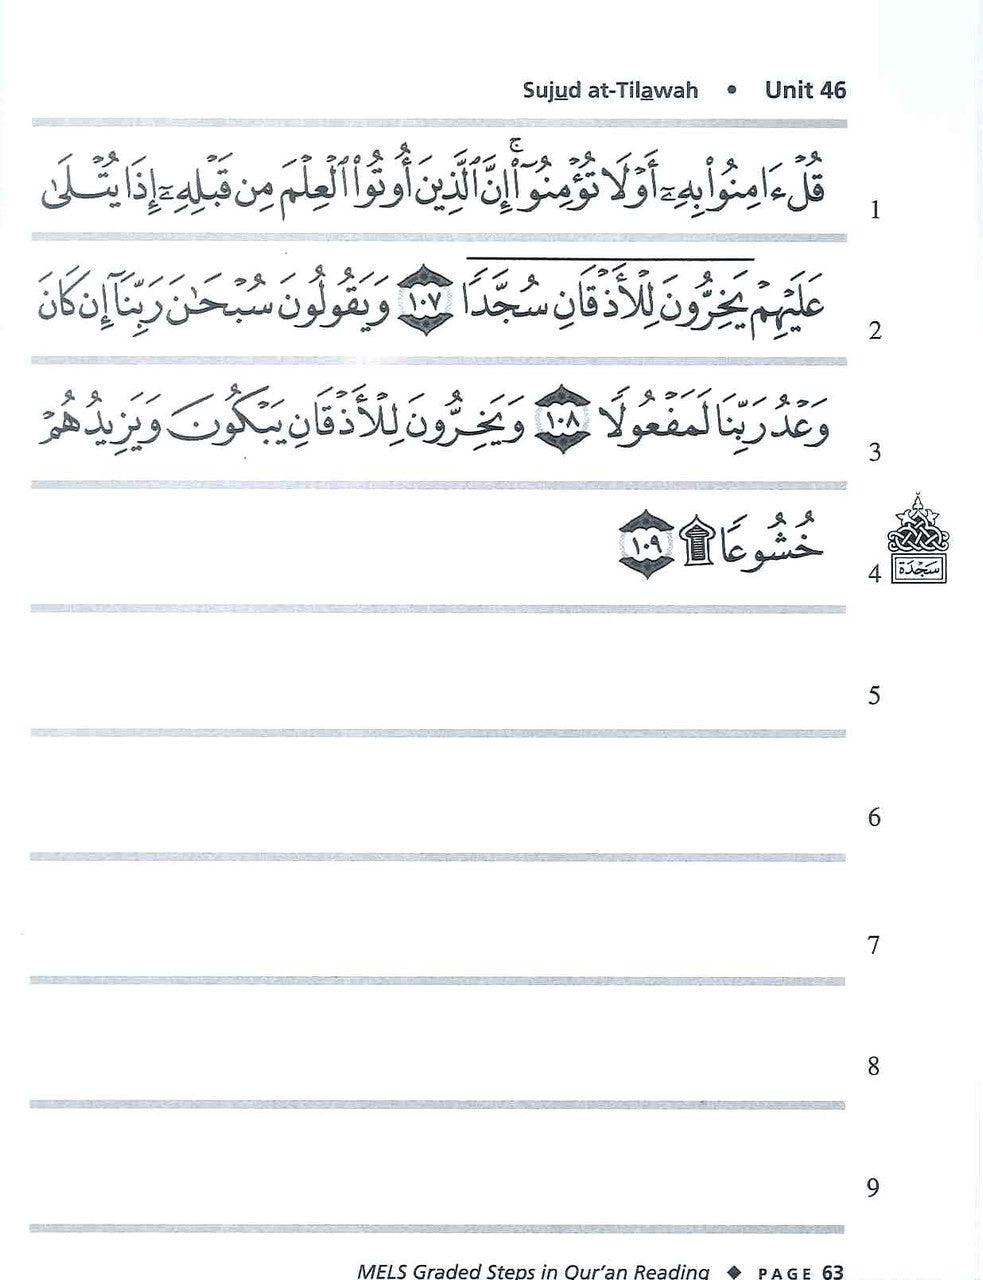 Sujud at-Tilawah • Unit 46
قُلۡ ءَامِنُواْ بِهِۦٓ أَوۡ لَا تُؤۡمِنُوٓاْۚ إِنَّ ٱلَّذِينَ أُوتُواْ ٱلۡعِلۡمَ مِن قَبۡلِهِۦٓ إِذَا يُتۡلَىٰ 1
عَلَيۡهِمۡ يَخِرُّونَۤ لِلۡأَذۡقَانِۤ سُجَّدٗاۤ ١٠٧ وَيَقُولُونَ سُبۡحَٰنَ رَبِّنَآ إِن كَانَ 2
وَعۡدُ رَبِّنَا لَمَفۡعُولٗا ١٠٨ وَيَخِرُّونَ لِلۡأَذۡقَانِ يَبۡكُونَ وَيَزِيدُهُمۡ 3
خُشُوعٗا ۩ ١٠٩ 4
سَجۡدَة
5
6
7
8
9
MELS Graded Steps in Qur'an Reading ◆ PAGE 63